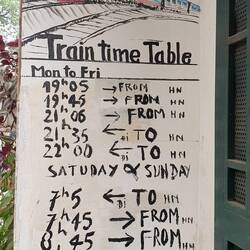 Train time Table
Mon to Fri
19h05 → FROM HN
19h45 → FROM HN
21h06 → FROM HN
21h35 ← TO HN
22h00 ← Di TO HN
SATUDAY & SUNDAY
7h5 ← Di TO HN
7h45 → FROM HN
8h45 → FROM HN